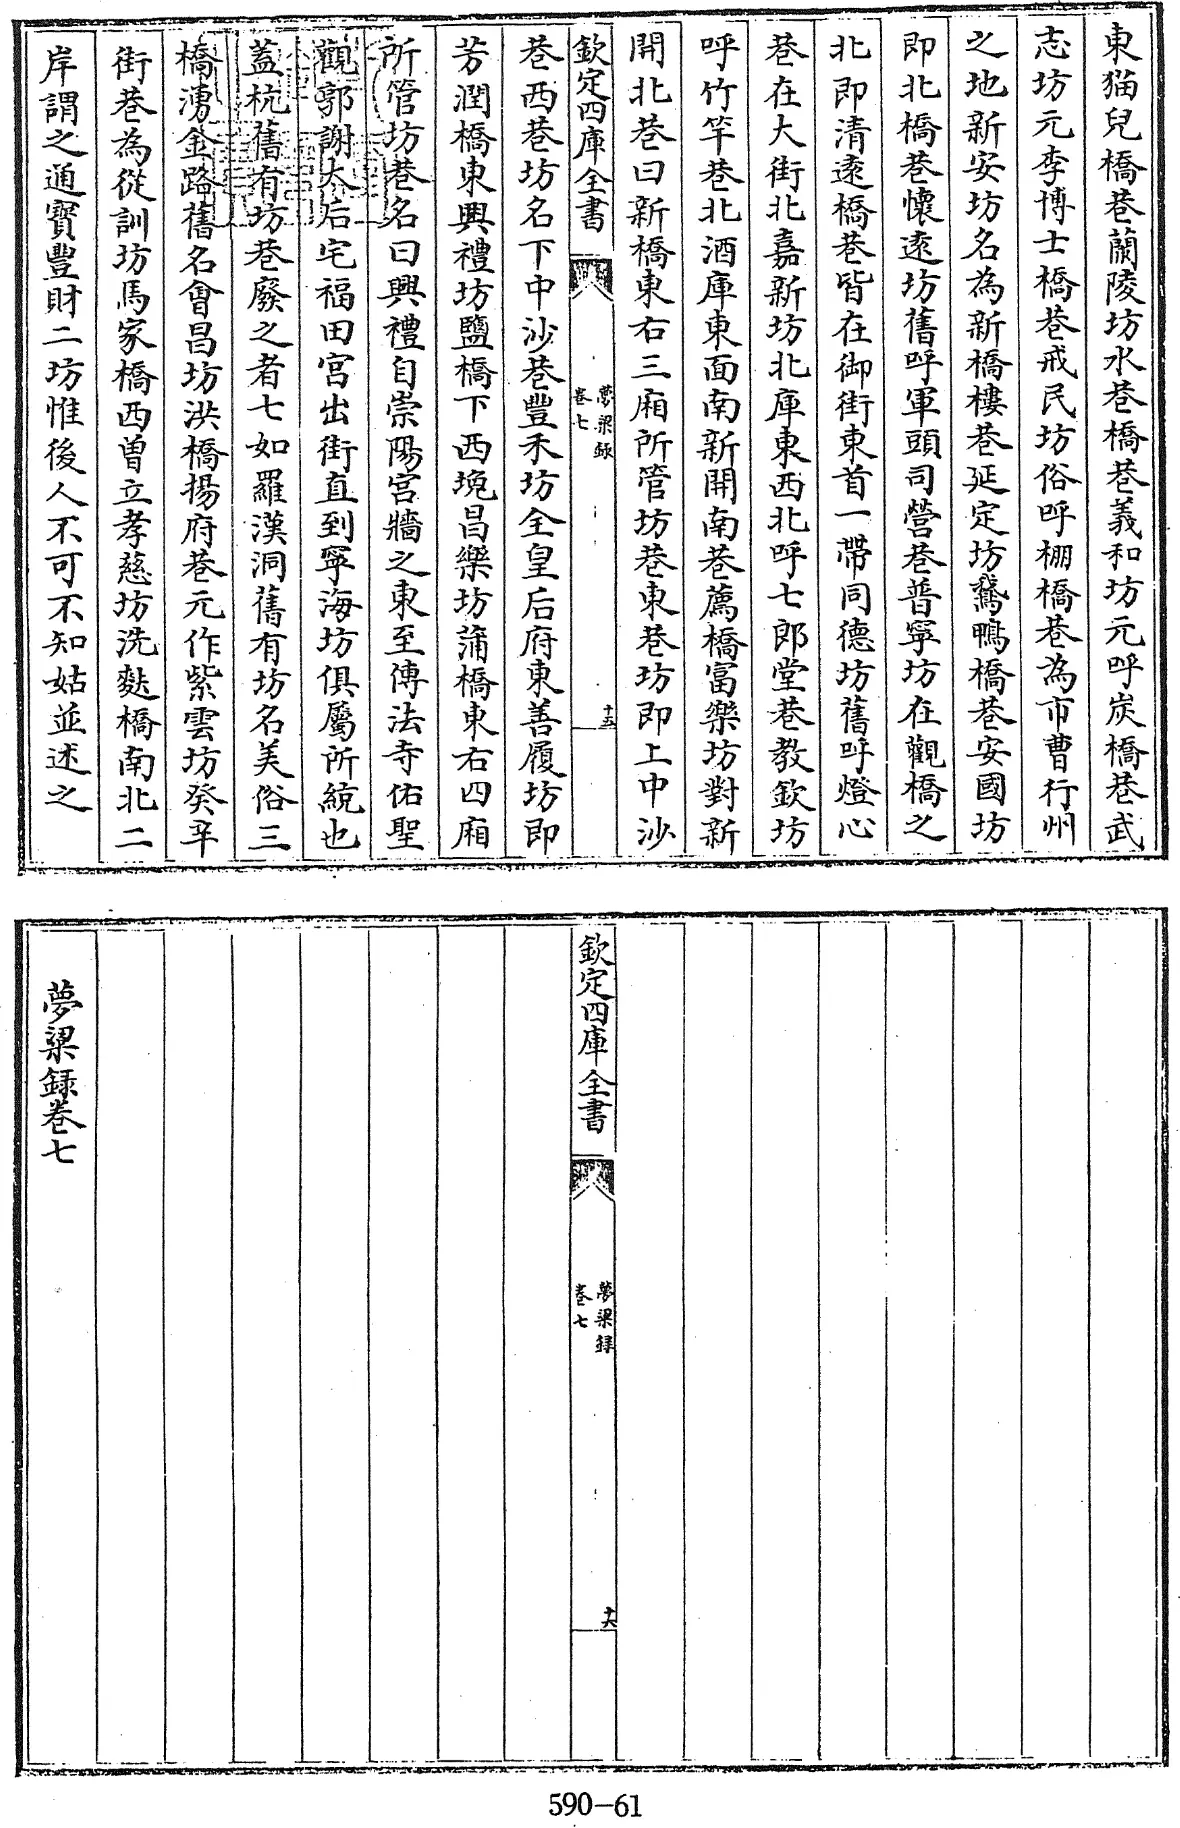 東猫兒橋巷蘭陵坊水巷橋巷義和坊元呼炭橋巷武
志坊元李博士橋巷戒民坊俗呼棚橋巷為市曹行州
之地新安坊名為新橋樓巷延定坊鵞鴨橋巷安國坊
即北橋巷懷逺坊舊呼軍頭司營巷普寧坊在觀橋之
北即清逺橋巷皆在御街東首一帶同德坊舊呼燈心
巷在大街北嘉新坊北庫東西北呼七郎堂巷教欽坊
呼竹竿巷北酒庫東面南新開南巷薦橋富樂坊對新
開北巷曰新橋東右三廂所管坊巷東巷坊即上中沙
欽定四庫全書
夢梁録
卷七
十五
巷西巷坊名下中沙巷豐禾坊全皇后府東善履坊即
芳潤橋東興禮坊鹽橋下西堍昌樂坊蒲橋東右四廂
所管坊巷名曰興禮自崇陽宮牆之東至傳法寺佑聖
觀郭謝太后宅福田宫出街直到寧海坊俱屬所統也
蓋杭舊有坊巷廢之者七如羅漢洞舊有坊名美俗三
橋湧金路舊名會昌坊洪橋揚府巷元作紫雲坊癸辛
街巷為從訓坊馬家橋西曾立孝慈坊洗麩橋南北二
岸謂之通寳豐財二坊惟後人不可不知姑並述之
欽定四庫全書
夢梁録
卷七
十六
夢梁録卷七
590-61